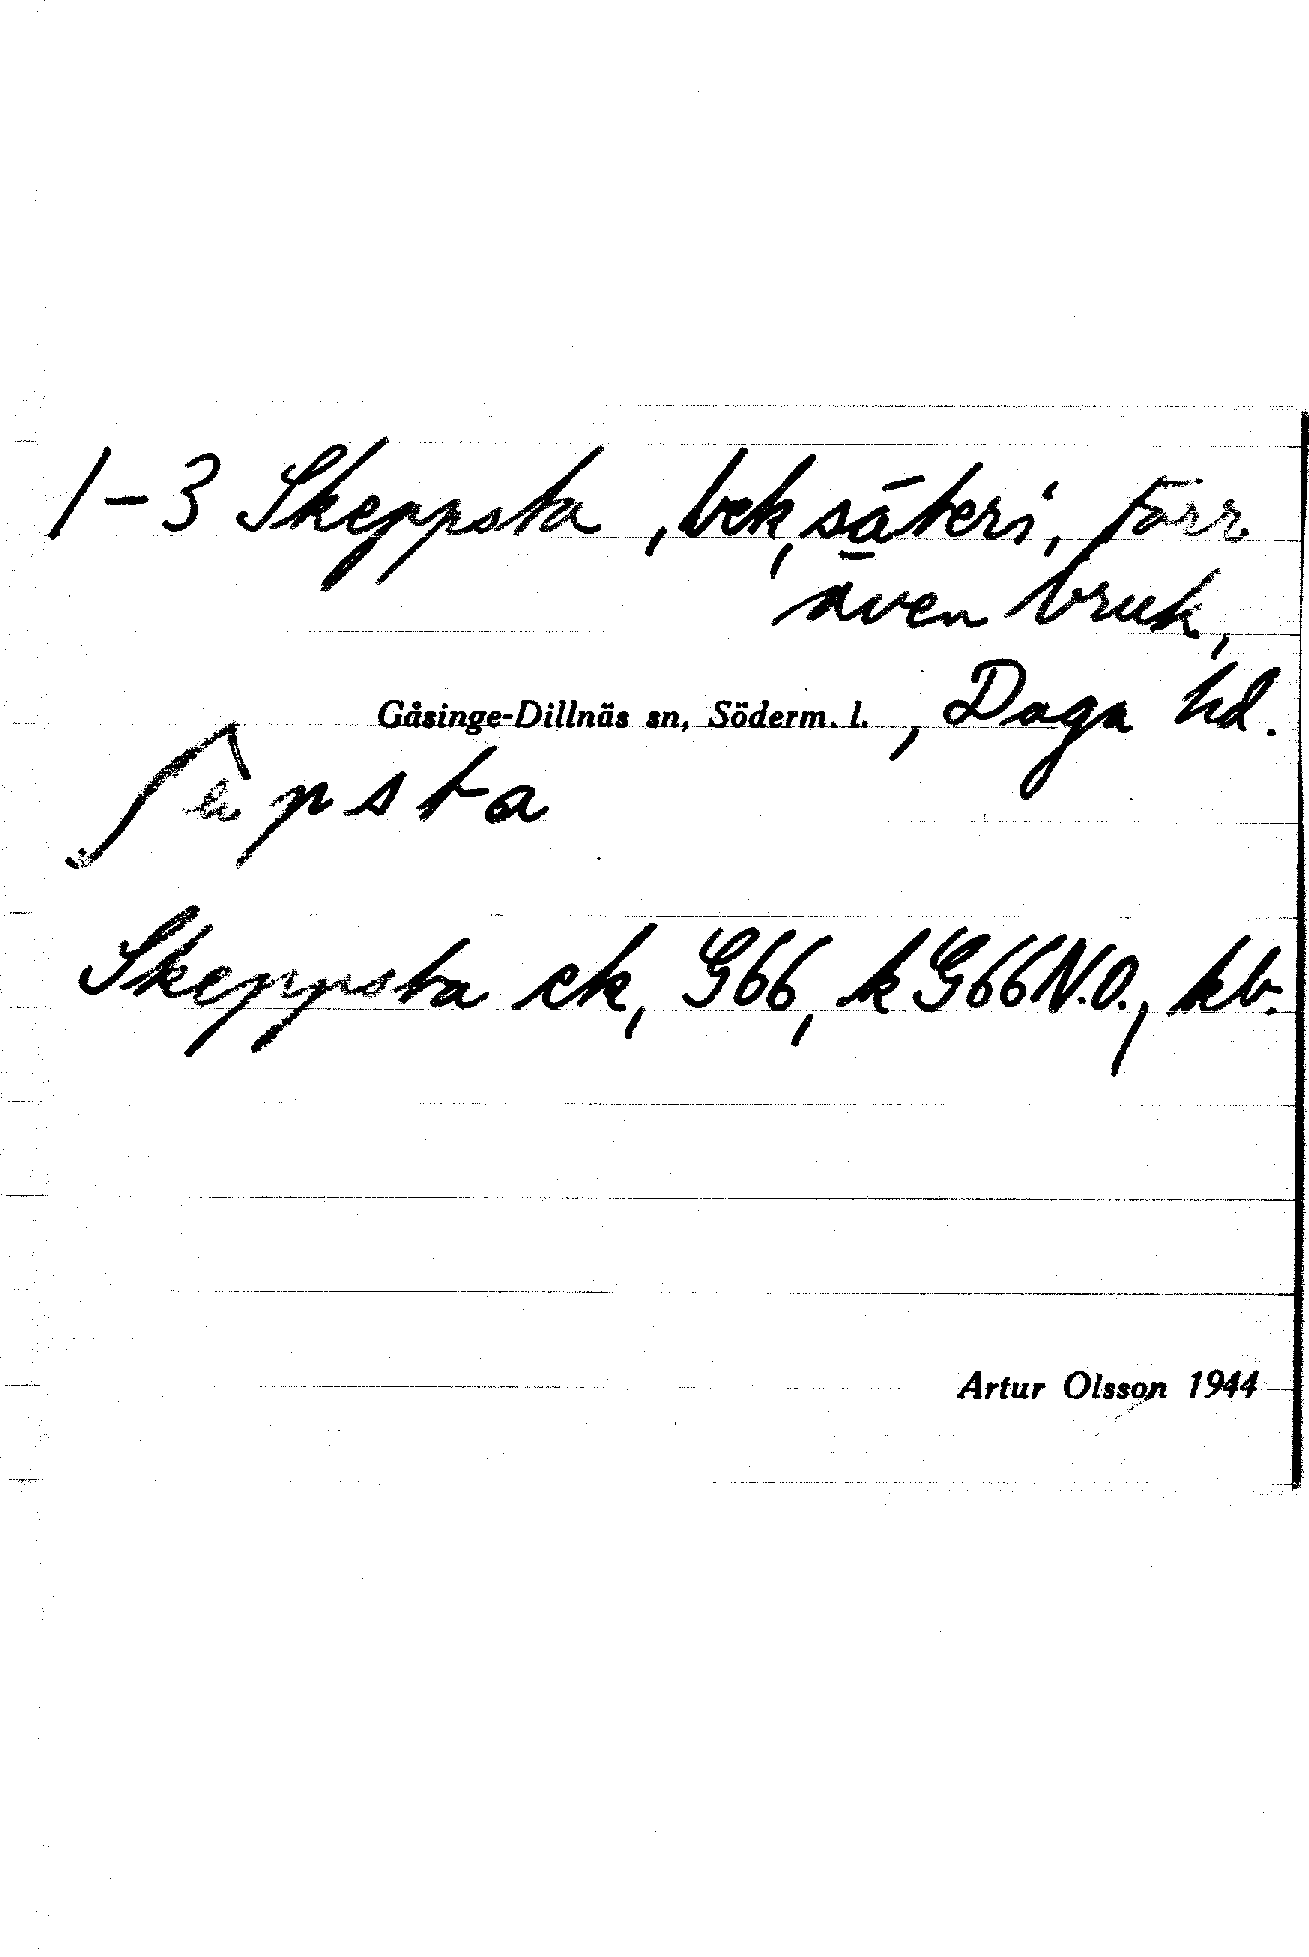 1-3 Skeppsta, bek, säteri, förr
även bruk,
Gåsinge-Dillnäs sn, Söderm. l., Daga hd.
Skeppsta ek, G66, k G66 N.O., kb.
Artur Olsson 1944